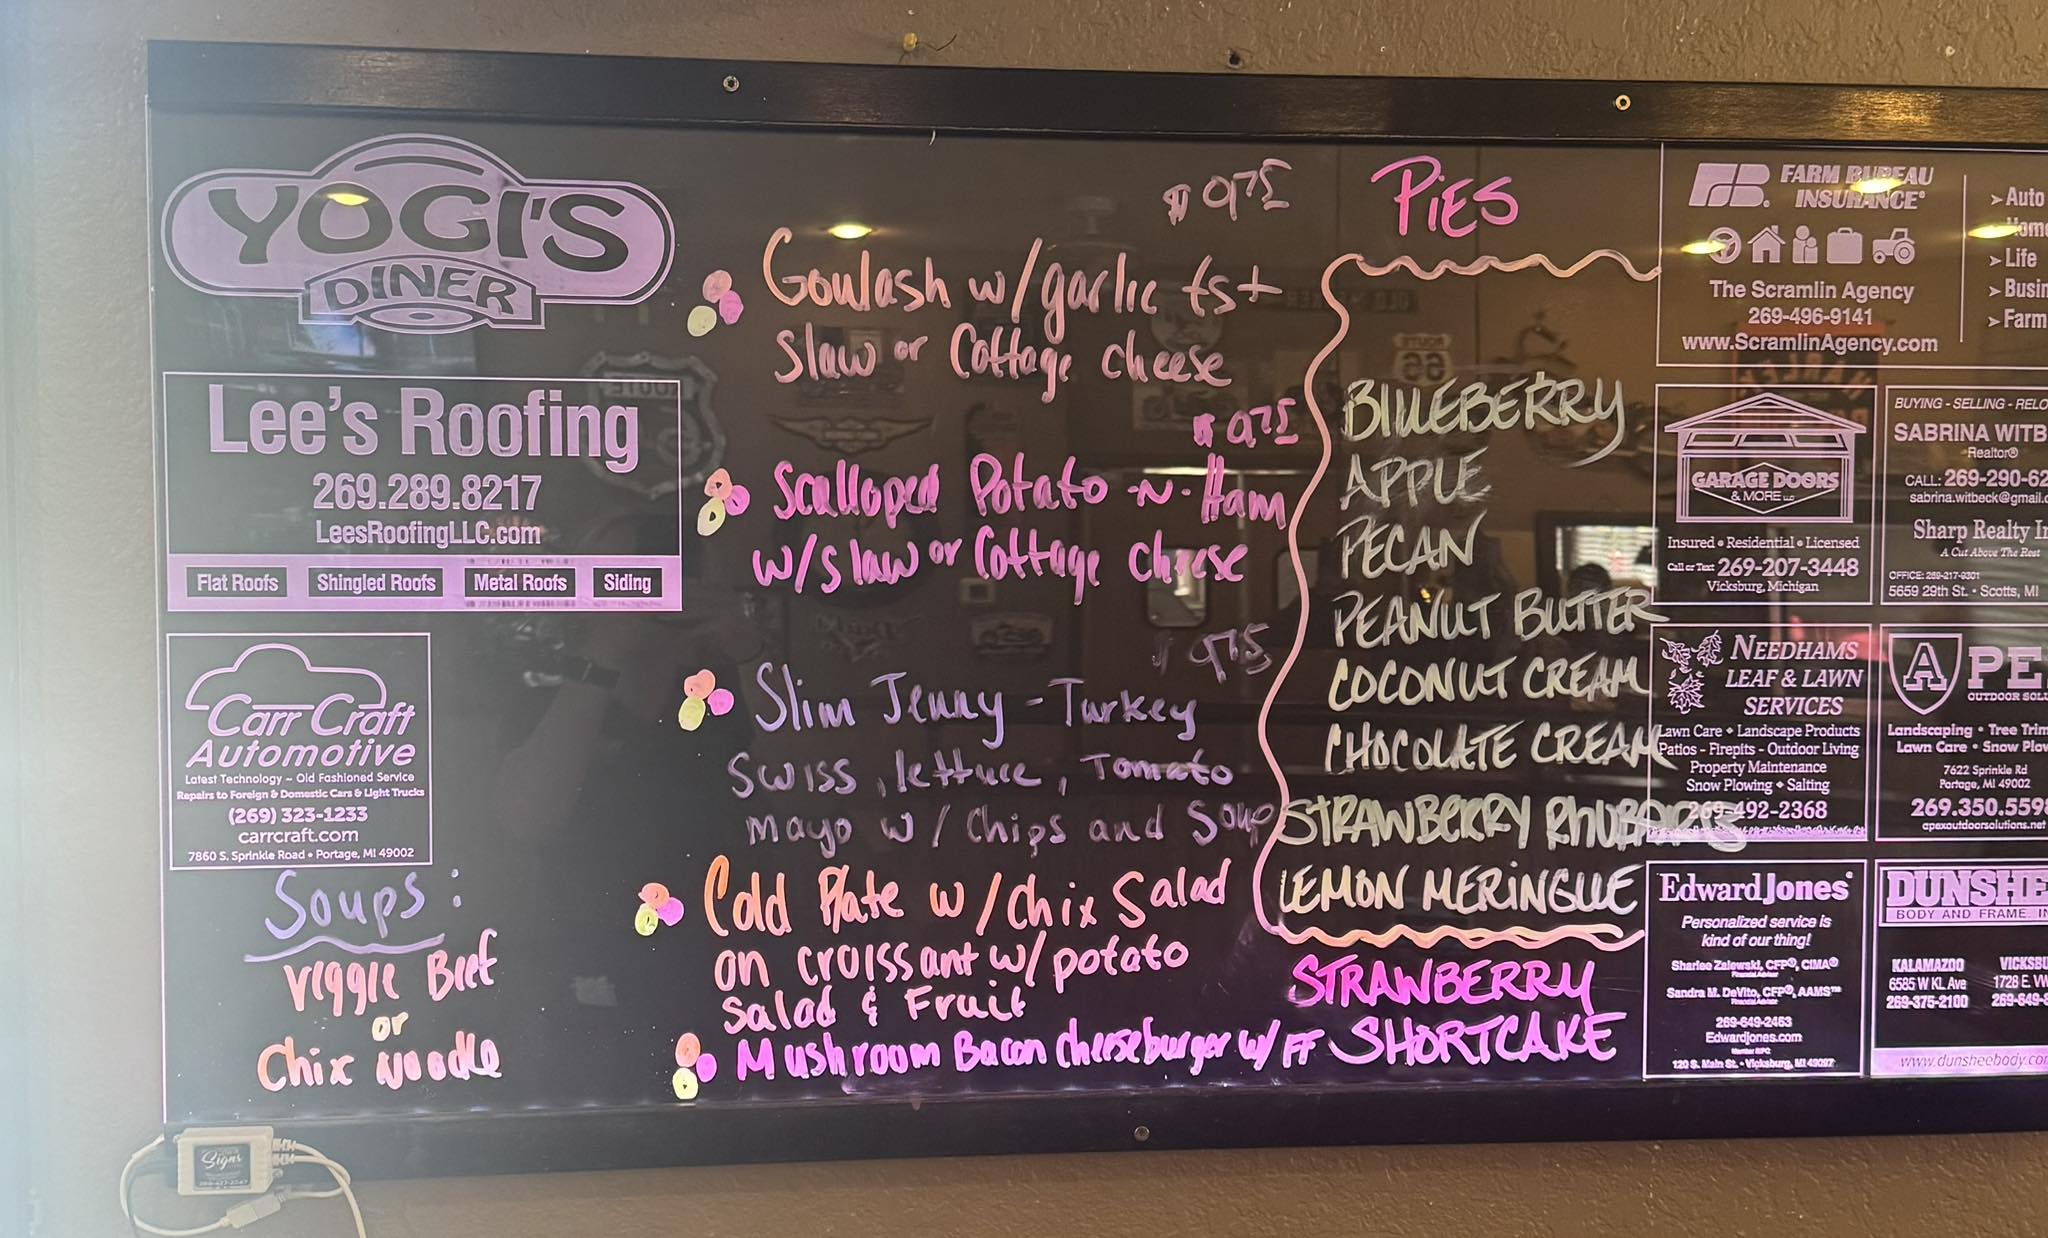 YOGI'S
DINER
Lee's Roofing
269.289.8217
LeesRoofingLLC.com
Flat Roofs
Shingled Roofs
Metal Roofs
Siding
Carr Craft
Automotive
Latest Technology ~ Old Fashioned Service
Repairs to Foreign & Domestic Cars & Light Trucks
(269) 323-1233
carrcraft.com
7860 S. Sprinkle Road • Portage, MI 49002
Soups:
Veggie Beef
or
Chix Noodle
$ 9.75
Goulash w/garlic tst
Slaw or Cottage cheese
$ 9.75
Scalloped Potato -N- Ham
w/slaw or Cottage cheese
$ 9.75
Slim Jenny - Turkey
Swiss, lettuce, Tomato
mayo w/chips and Soup
Cold Plate w/chix Salad
on croissant w/potato
salad & Fruit
Mushroom Bacon cheeseburger w/FF
PiES
BLUEBERRY
APPLE
PECAN
PEANUT BUTTER
COCONUT CREAM
CHOCOLATE CREAM
STRAWBERRY
LEMON MERINGUE
STRAWBERRY
SHORTCAKE
FARM BUREAU
INSURANCE
The Scramlin Agency
269-496-9141
www.ScramlinAgency.com
➢ Auto
➢ Life
➢ Farm
GARAGE DOORS
& MORE LLC
Insured • Residential • Licensed
Call or Text 269-207-3448
Vicksburg, Michigan
BUYING - SELLING -
SABRINA
Realtor®
CALL: 269-290-62
sabrina.witbeck@gmail.
Sharp Realty
A Cut Above The Rest
OFFICE: 269-217-9301
5659 29th St. • Scotts, MI
NEEDHAMS
LEAF & LAWN
SERVICES
Lawn Care • Landscape Products
Patios - Firepits - Outdoor Living
Property Maintenance
Snow Plowing • Salting
269-492-2368
A
Landscaping • Tree
Lawn Care • Snow
7622 Sprinkle Rd
Portage, MI 49002
269.350.559
apexoutdoorsolutions.net
Edward Jones
Personalized service is
kind of our thing!
Sharlee Zalewski, CFP®, CIMA®
Financial Advisor
Sandra M. DeVito, CFP®, AAMS™
Financial Advisor
269-649-2463
Edwardjones.com
Member SIPC
120 S. Main St. • Vicksburg, MI 49097
DUNSHE
BODY AND FRAME
KALAMAZOO
6585 W KL Ave
269-375-2100
1728 E.
269-649-
www.dunsheebody.co
Signs